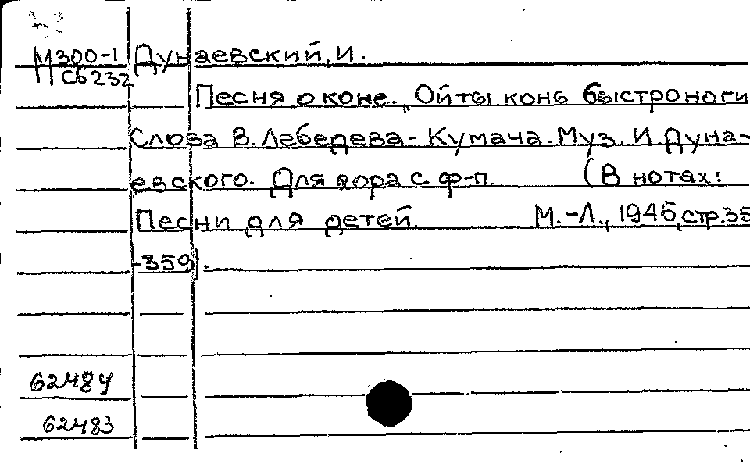 М300-1 Дунаевский, И.
Сб232
Песня о коне. Ой ты конь быстроноги
Слова В. Лебедева-Кумача. Муз. И. Дуна-
евского. Для хора с ф-п. (В нотах:
Песни для детей. М.-Л., 1945, стр. 35
-359).
62484
62483